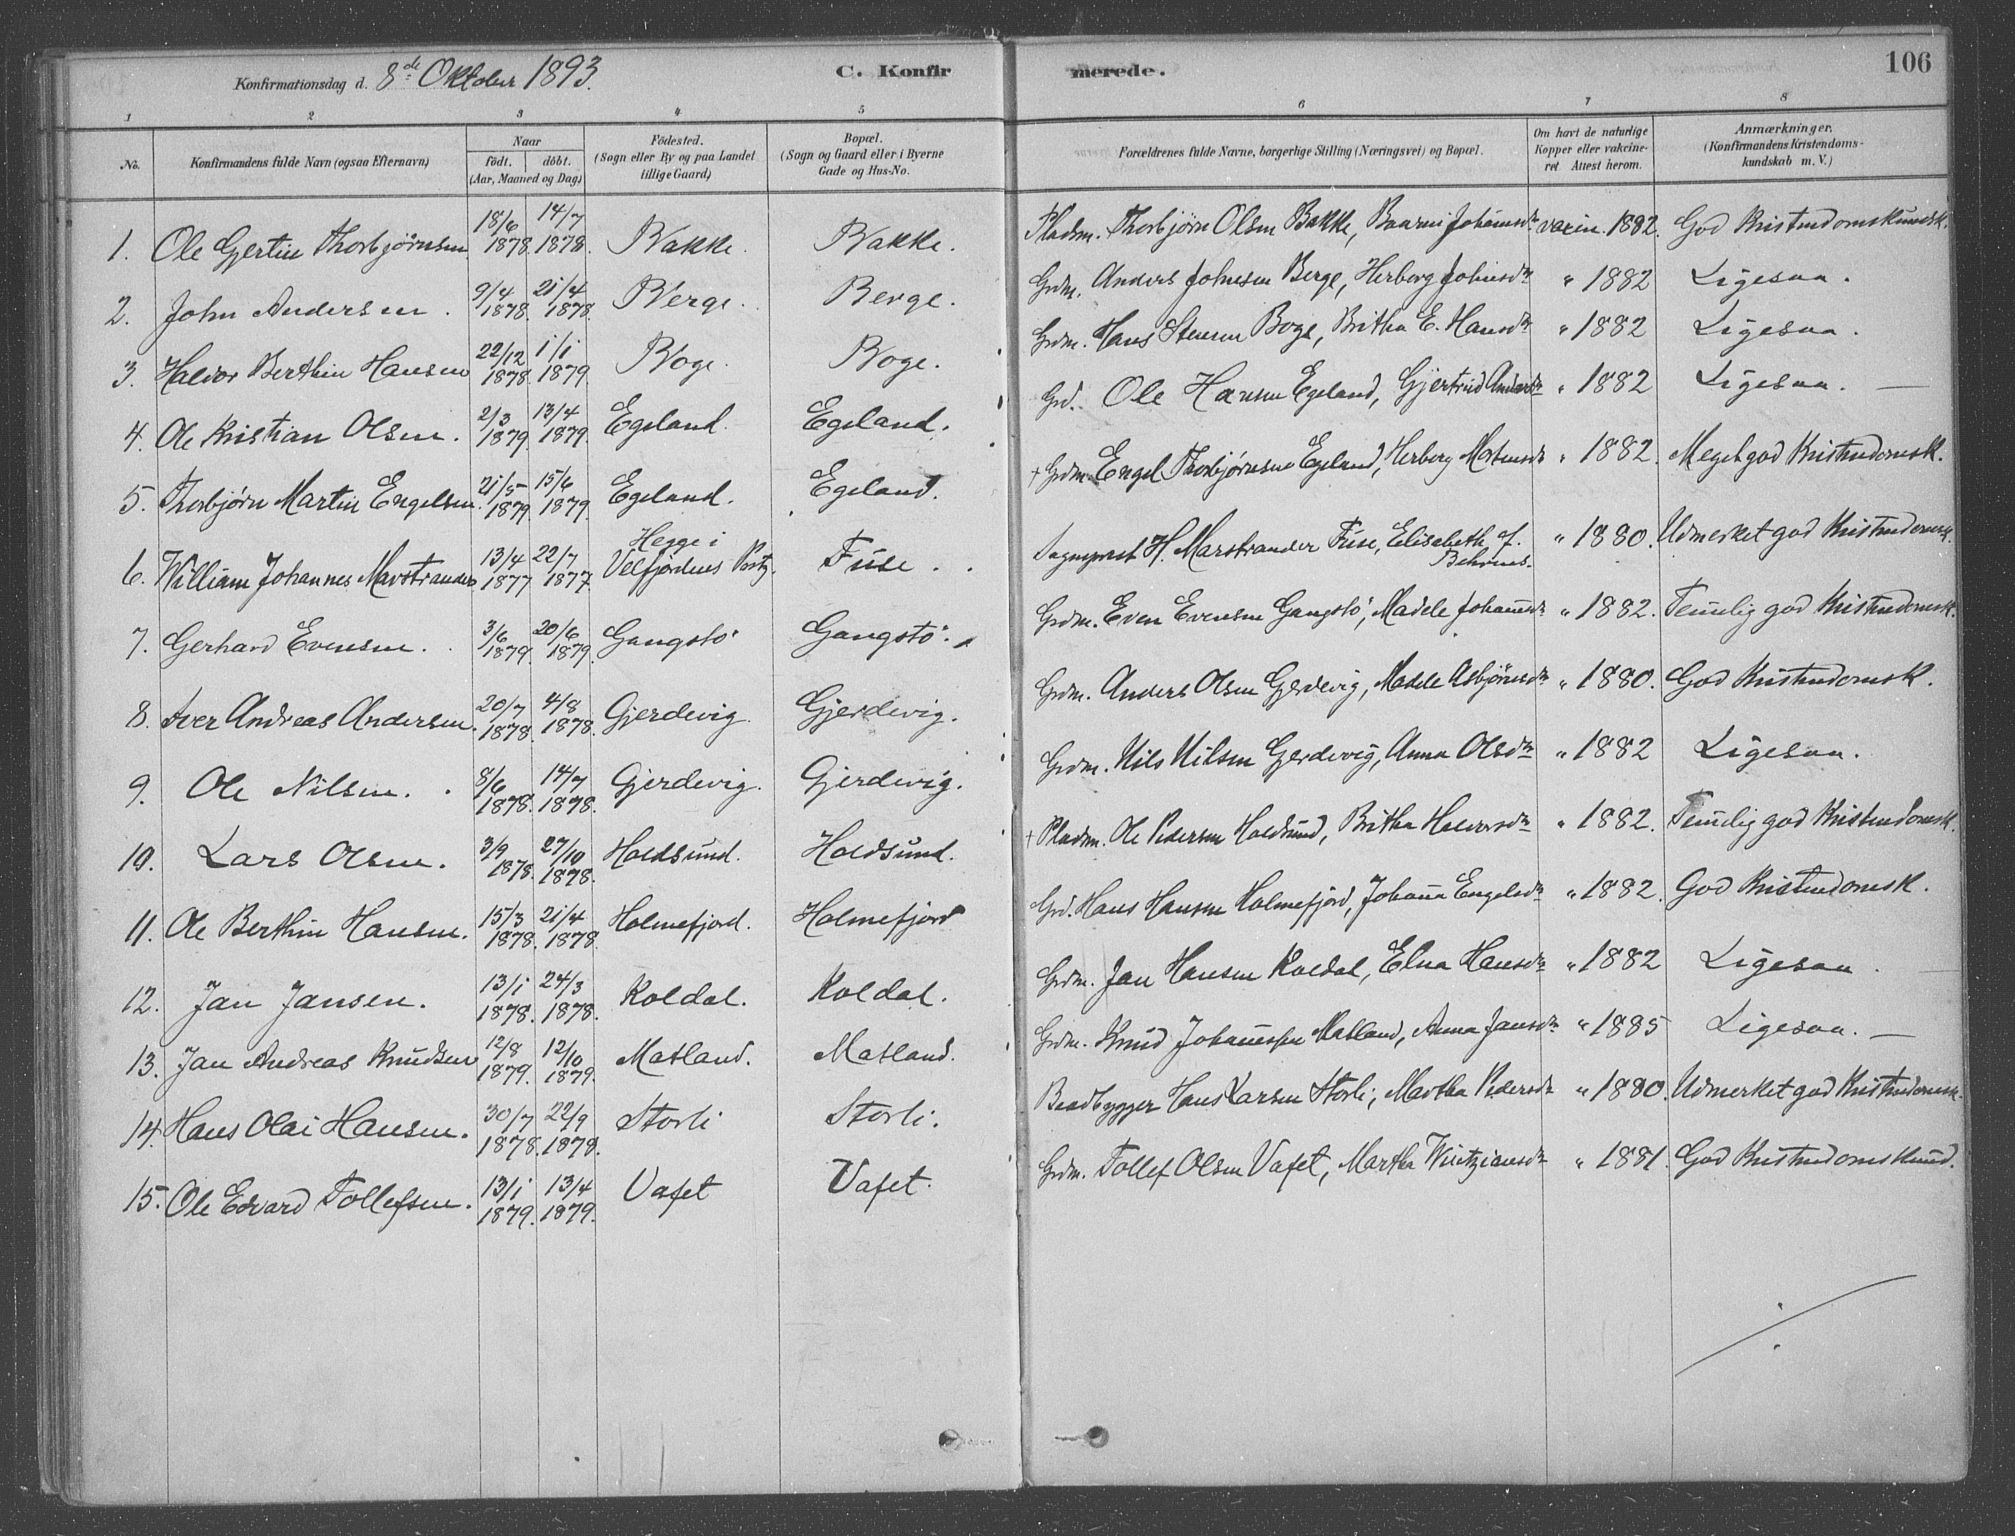 Konfirmationsdag d. 8de Oktober 1893. C. Konfirmerede. 106
1 2 3 4 5 6 7 8
No. Konfirmandens fulde Navn (ogsaa Efternavn) Naar födt. döbt. (Aar, Maaned og Dag) Födested. (Sogn eller By og paa Landet tillige Gaard) Bopæl. (Sogn og Gaard eller i Byerne Gade og Hus-No. Forældrenes fulde Navne, borgerlige Stilling (Næringsvei) og Bopæl. Om havt de naturlige Kopper eller vakcineret Attest herom. Anmærkninger. (Konfirmandens Kristendomskundskab m. V.)
1. Ole Gjertin Thorbjørnsen 18/6 1878. 14/7 1878. Bakke. Bakke. Pladsm. Thorbjørn Olsen Bakke, Johansdr vaxin. 1882. God Kristendomskundsk.
2. John Andersen. 9/4 1878. 21/4 1878. Berge. Berge. Grdm. Anders Johnsen Berge, Herborg Johnsdr " 1882 Ligesaa.
3. Halvor Berthin Hansen 22/12 1878. 1/1 1879. Boge. Boge. Grdm. Hans Stensen Boge, Britha E. Hansdr " 1882 Ligesaa.
4. Ole Kristian Olsen. 2/3 1879. 13/4 1879. Egeland. Egeland. Grd. Ole Hansen Egeland, Gjertrud Andersdr " 1882 Ligesaa. —
5. Thorbjørn Martin Engelsen. 21/5 1879. 15/6 1879. Egeland. Egeland. + Grdm. Engel Thorbjørnsen Egeland, Herborg Mortensdr " 1882. Meget god Kristendomsk.
6. William Johannes Marstrander 13/4 1877 22/7 1877. Hegge i Velfjordens Fuse. Sognprest H. Marstrander Fuse, Elisabeth f. Behrens. " 1880. Udmerket god Kristendomsk.
7. Gerhard Evensen. 3/6 1879. 20/6 1879. Gangstö Gangstö. Grdm. Even Evensen Gangstö, Madele Johannsdr " 1882. Temlig god Kristendomsk.
8. Iver Andreas Andersen. 20/7 1878. 4/8 1878. Gjerdevig. Gjerdevig. Grdm. Anders Olsen Gjerdevig, Madele Asbjörnsdr " 1880. God Kristendomsk.
9. Ole Nilsen. 8/6 1878. 14/7 1878. Gjerdevig. Gjerdevig. Grdm. Nils Nilsen Gjerdevig, Anna Olsdr " 1882 Ligesaa.
10. Lars Olsen. 3/9 1878. 27/10 1878. Holdsund. Holdsund. + Pladsm. Ole Pedersen Holdsund, Britha Halvorsdr " 1882. Temlig god Kristendomsk.
11. Ole Berthin Hansen. 15/3 1878. 21/4 1878. Holmefjord. Holmefjord Grd. Hans Hansen Holmefjord, Johanna Engelsdr " 1882. God Kristendomsk.
12. Jan Jansen. 13/1 1878. 24/3 1878. Koldal. Koldal. Grdm. Jan Hansen Koldal, Elna Hansdr " 1882 Ligesaa.
13. Jan Andreas Knudsen 12/8 1879. 12/10 1879. Matland. Matland. Grdm. Knud Johannessen Matland, Anna Jansdr " 1885 Ligesaa. —
14. Hans Olai Hansen. 30/7 1878. 22/9 1878. Storli Storli. Baadbygger Hans Larsen Storli, Martha Pedersdr " 1880. Udmerket god Kristendomsk.
15. Ole Edvard Tollefsen. 13/1 1879. 13/4 1879. Vaset Vaset. Grdm. Tollef Olsen Vaset, Martha " 1881. God Kristendomskund.